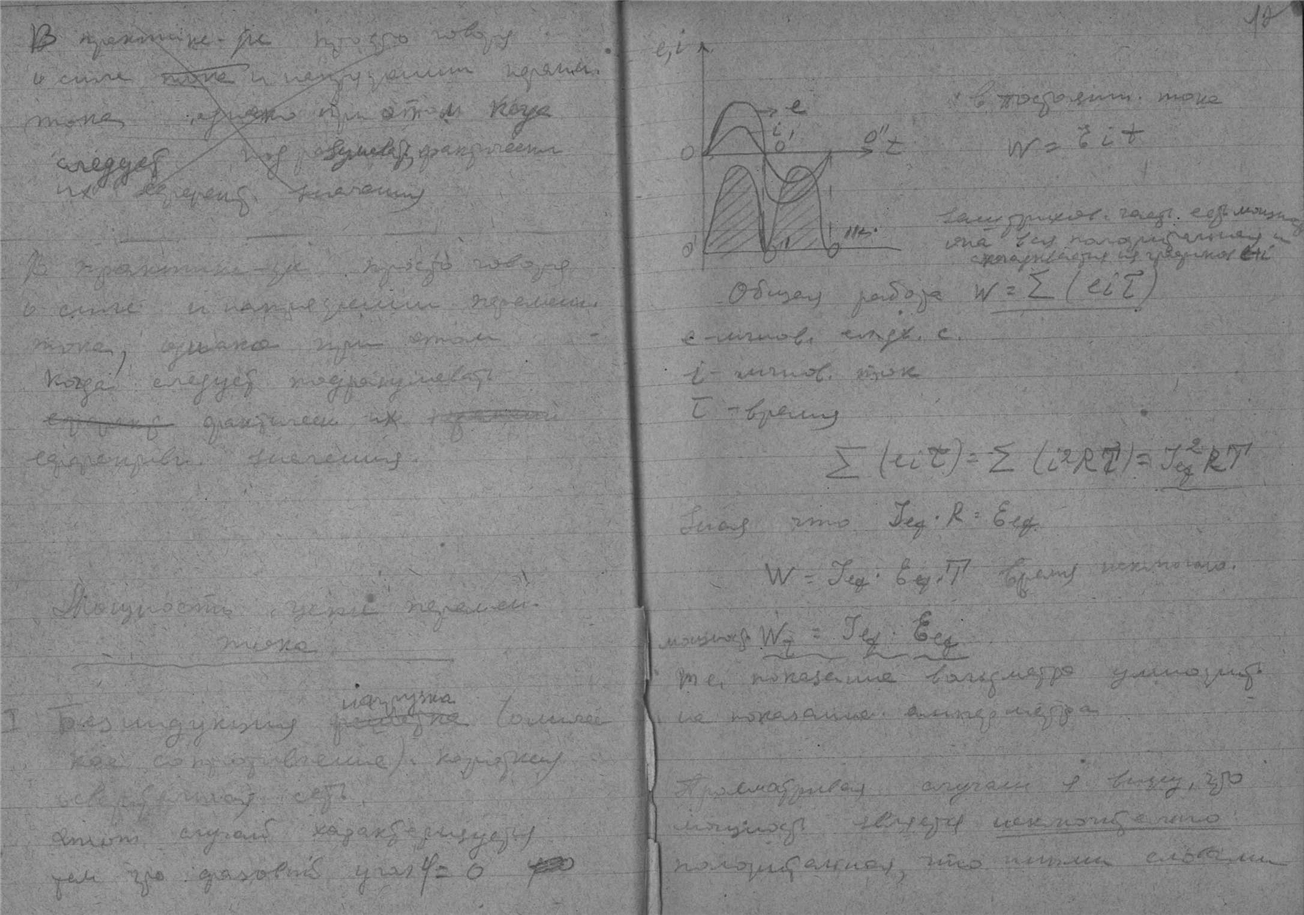 В практике-же просто говоря
о силе тока и напряжении перемен.
тока, однако при этом когда
следует подразумевать фактически
их эффект. значения
В практике-же просто говоря
о силе и напряжении перемен.
тока, однако при этом
когда следует подразумевать
фактически их
эффективн. значения
Мощность цепи перемен.
тока
I Безиндукция нагрузка (омическ
кое сопротивление). короткая
осветительная сеть.
Этот случай характеризуется
тем что фазовый угол φ = 0
18
e, i
e
i
0 0' 0" t
0' 0'' 0'''
в постоянн. тока
W = Eit
Заштрихов. часть есть мощн
она вся положительная и
складывается из графиков e и i
Общая работа W = Σ (eiτ)
e - мгнов. эл. дв. с.
i - мгнов. ток
τ - время
Σ (eiτ) = Σ (i²Rτ) = I²eф RT
Зная что Ieф · R = Eeф
W = Ieф · Eeф · T время исключаю.
мощность W₁ = Ieф · Eeф
т.е. показание вольтметра умножить
на показание амперметра
Просматривая случай I вижу, что
мощность является исключительно
положительная, что иными словами